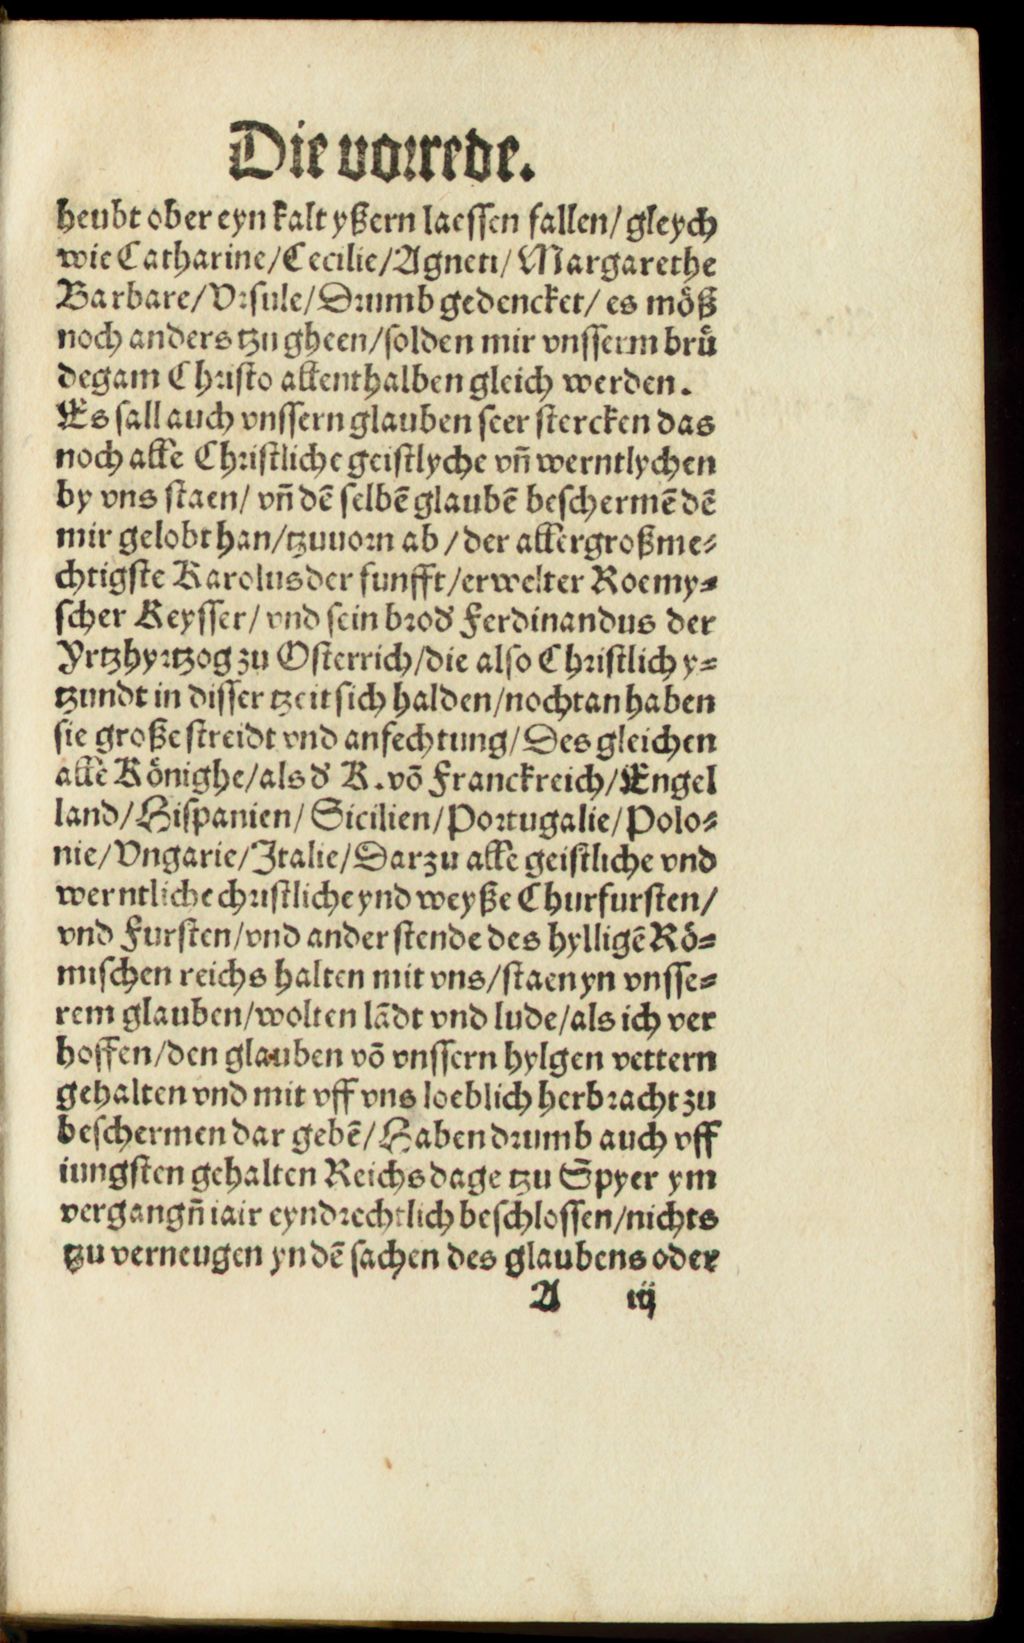 Die vorrede.
heubt ober eyn kalt yßern laessen fallen/ gleych
wie Catharine/Cecilie/Agneti/ Margarethe
Barbare/Vrsule/Drumb gedencket/ es mö̈ß
noch anders tzu gheen/solden mir vnsserm brů
degam Christo allenthalben gleich werden.
Es sall auch vnssern glauben seer stercken das
noch alle Christliche geistlyche vn̄ werntlychen
by vns staen/ vn̄ dē selbē glaubē beschermē dē
mir gelobt han/tzuuorn ab /der allergroßme⸗
chtigste Karolus der funfft/erwelter Roemy⸗
scher Keysser/ vnd sein brod' Ferdinandus der
Yrtzhyrtzog zu Osterrich/die also Christlich y⸗
tzundt in disser tzeit sich halden/nochtan haben
sie große streidt vnd anfechtung/Des gleichen
alle Könighe/als d' K. vō Franckreich/Engel
land/Hispanien/ Sicilien/Portugalie/Polo⸗
nie/Vngarie/Italie/Darzu alle geistliche vnd
werntliche christliche ynd weyße Churfursten/
vnd Fursten/vnd ander stende des hylligē Rö⸗
mischen reichs halten mit vns/staen yn vnsse⸗
rem glauben/wolten lādt vnd lude/als ich ver
hoffen/den glauben vō vnssern hylgen vettern
gehalten vnd mit vff vns loeblich herbracht zu
beschermen dar gebē/Haben drumb auch vff
iungsten gehalten Reichs dage tzu Spyer ym
vergangn̄ iair eyndrechtlich beschlossen/nichts
tzu verneugen yn dē sachen des glaubens oder
A iij